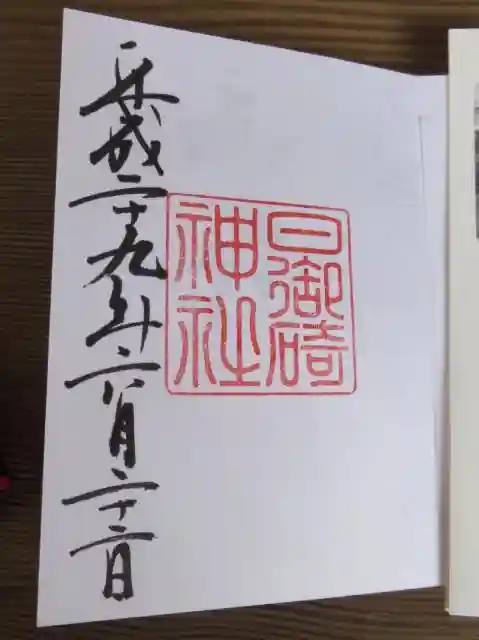 日御碕
神社
平成二十九年六月二十二日